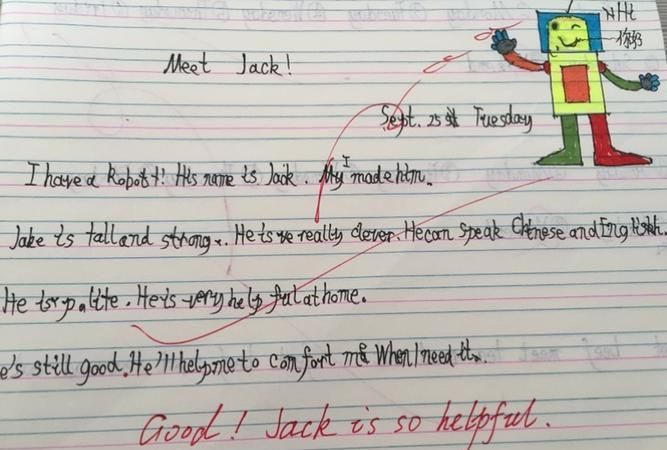 你好
Meet Jack!
Sept. 25 Tuesday
I have a Robot! His name is Jack. I made him.
Jake is tall and strong. He is really clever. He can speak Chinese and English.
He is polite. He is very helpful at home.
e's still good. He'll help me to comfort me When I need it.
Good! Jack is so helpful.